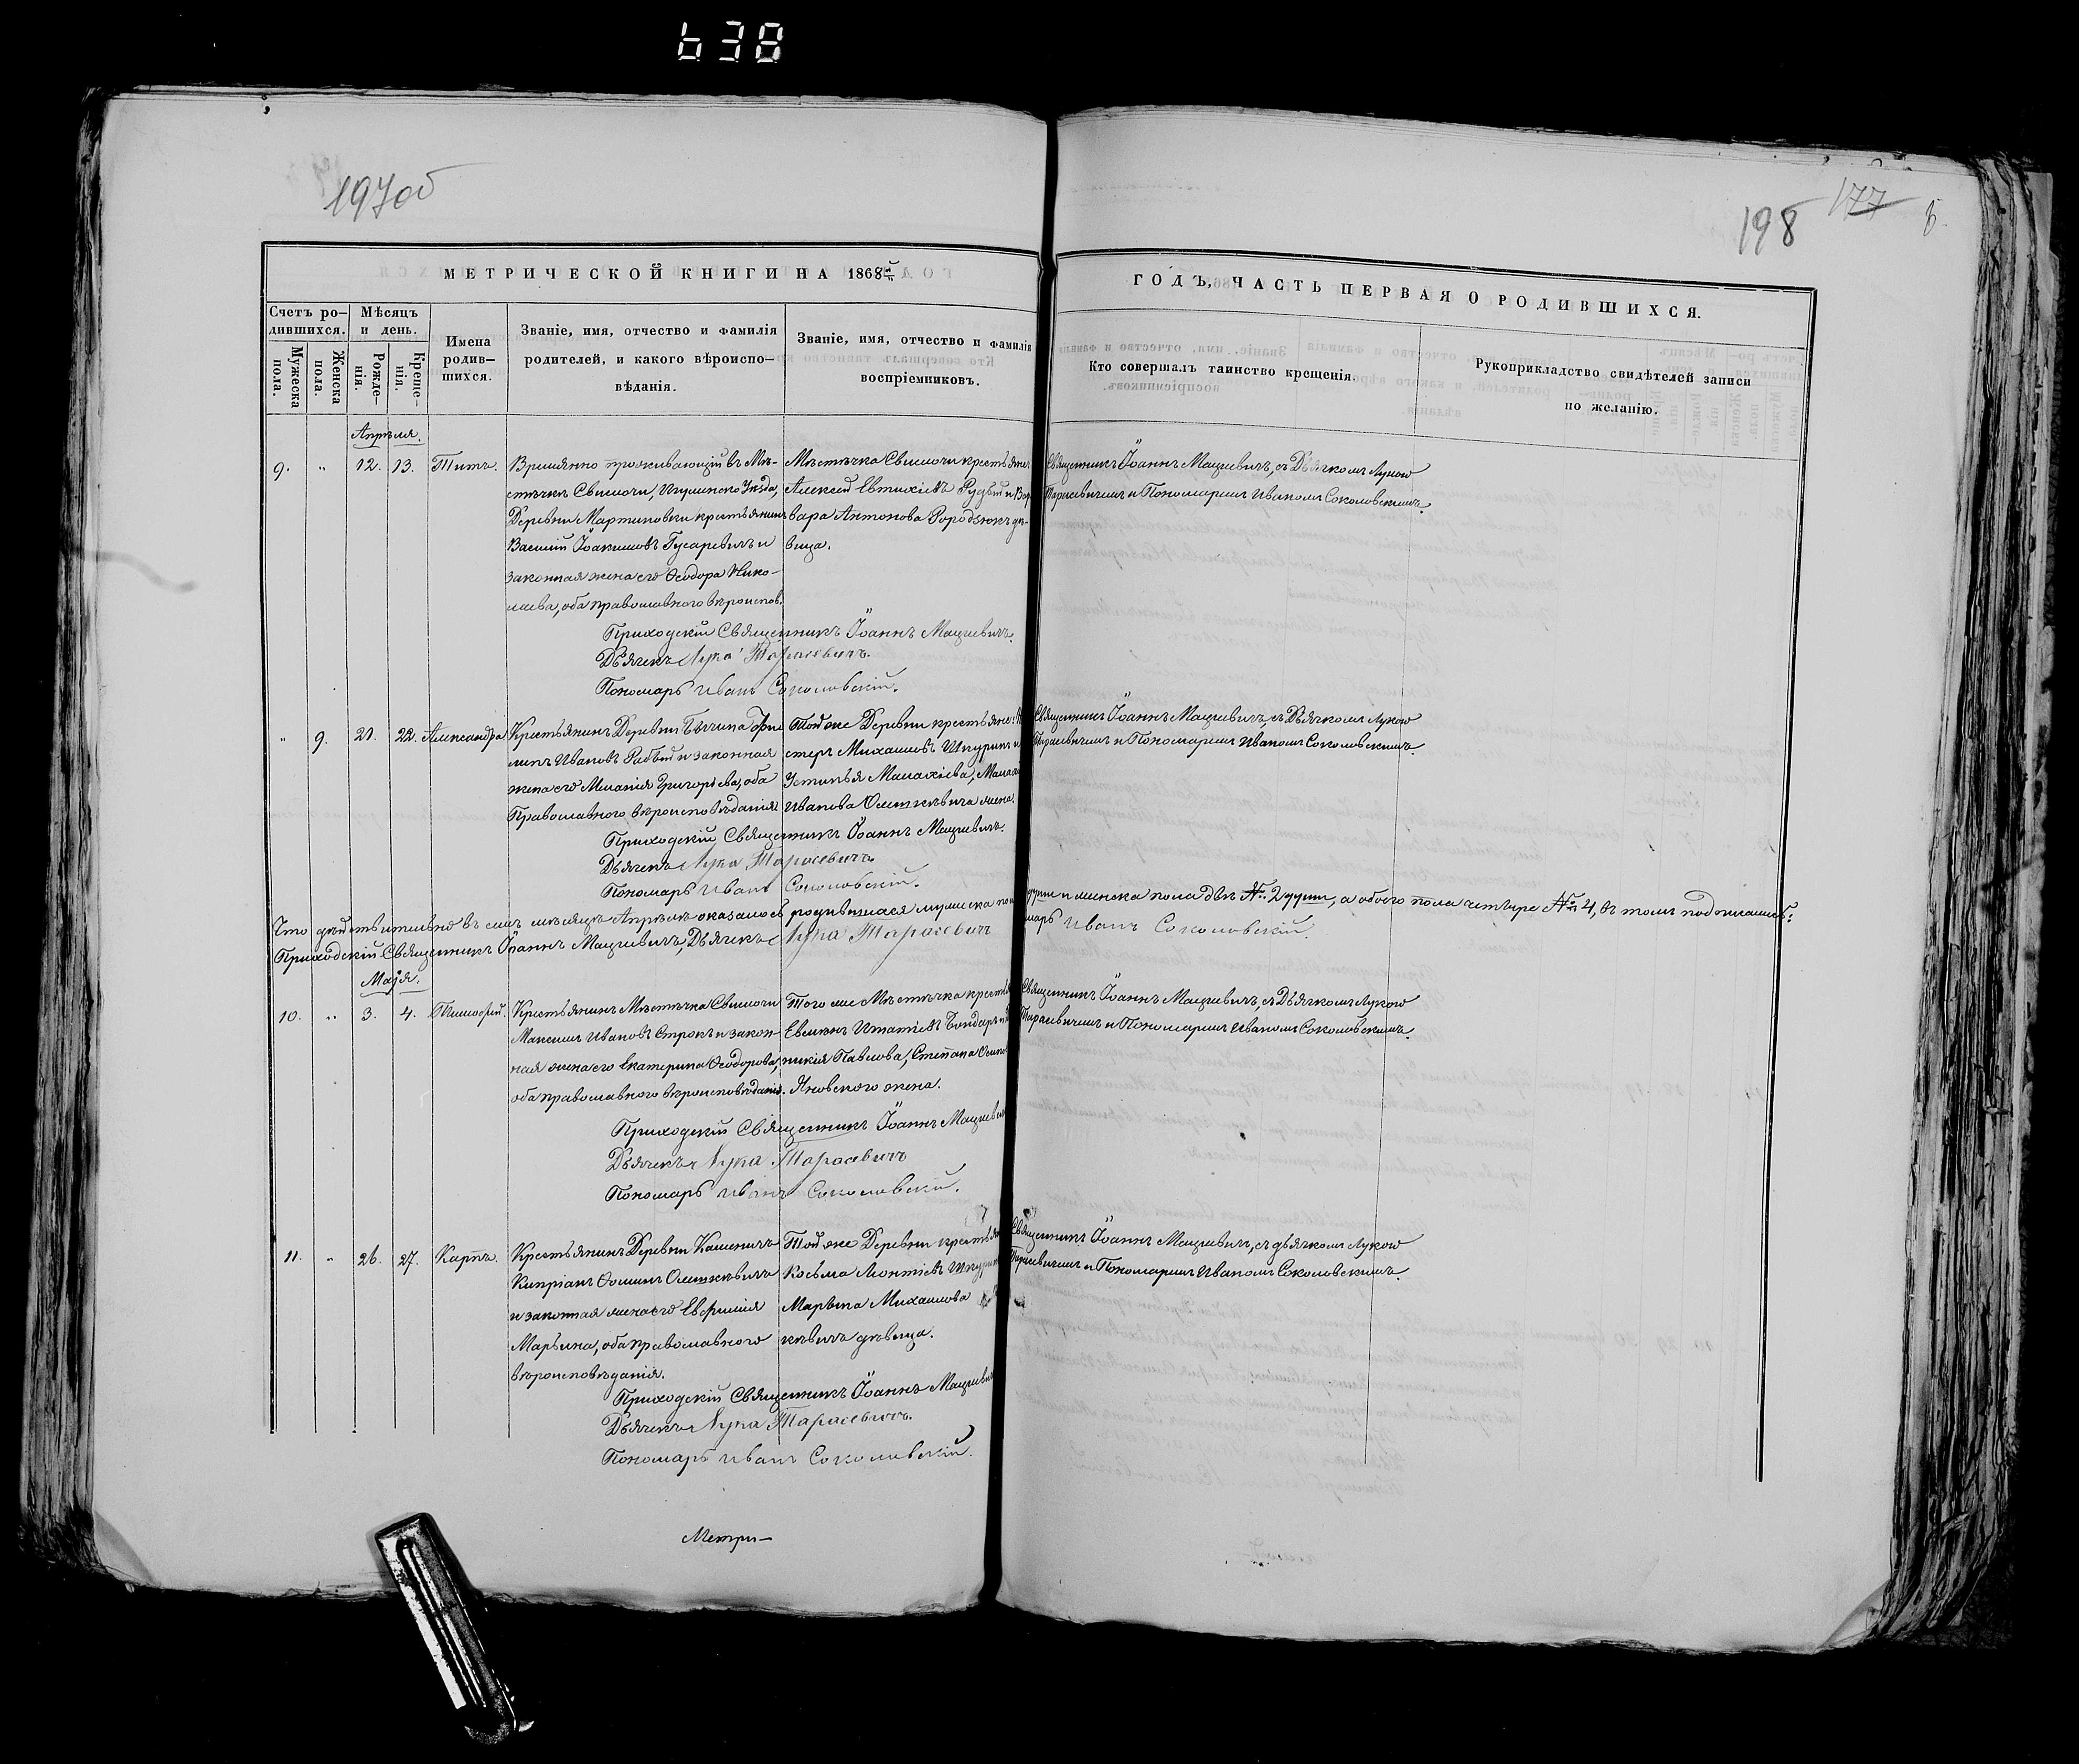 638
197об
198
177
МЕТРИЧЕСКОЙ КНИГИ НА 1868й
ГОДЪ, ЧАСТЬ ПЕРВАЯ О РОДИВШИХСЯ.
Счетъ ро-
дившихся.
Мѣсяцъ
и день.
Мужеска
пола.
Женска
пола.
Рожде-
нія.
Креще-
нія.
Имена
родив-
шихся.
Званіе, имя, отчество и фамилія
родителей, и какого вѣроиспо-
вѣданія.
Званіе, имя, отчество и фамилія
воспріемниковъ.
Кто совершалъ таинство крещенія.
Рукоприкладство свидѣтелей записи
по желанію.
Апрѣля.
9. " 12. 13. Титъ.
Временно проживающій въ Мѣ-
стечкѣ Свислочи, Игуменскаго Уѣзда,
Деревни Мартиновки крестьянинъ
Василій Іоакимовъ Гусаревичъ и
законная жена его Ѳеодора Нико-
лаева, оба православного вѣроиспов.
Мѣстечка Свислочи крестьяне
Алексій Евтихіевъ Рудый и Вар
вара Антонова Городзюкъ дѣ-
вица.
Священникъ Іоаннъ Мацкевичъ, съ Дьячкомъ Лукою
Тарасевичемъ и Пономаремъ Иваномъ Соколовскимъ.
Приходскій Священникъ Іоаннъ Мацкевичъ.
Дьячекъ Лука Тарасевичъ.
Пономарь Иванъ Соколовскій.
" 9. 21. 22. Александра
Крестьянинъ Деревни
Ивановъ Рабый и законная
жена его Меланія Григорьева, оба
Православного вѣроисповѣданія
Той же Деревни крестьяне
Михаиловъ Шкурин и
Устинья Малахіева,
Иванова Олешкевича жена.
Священникъ Іоаннъ Мацкевичъ, съ Дьячкомъ Лукою
Тарасевичемъ и Пономаремъ Иваномъ Соколовскимъ.
Приходскій Священникъ Іоаннъ Мацкевичъ.
Дьячекъ Лука Тарасевичъ
Пономарь Иванъ Соколовскій.
Что дѣйствительно въ семъ мѣсяцѣ Апрѣлѣ оказалось родившихся мужеска пола души и женска пола двѣ № 2 души, а обоего пола четыре № 4, въ томъ подписались:
Приходскій Священникъ Іоаннъ Мацкевичъ, Дьячекъ Лука Тарасевичъ Иванъ Соколовскій.
Маія.
10. " 3. 4. Тимофей.
Крестьянинъ Мѣстечка Свислочи
Максимъ Ивановъ Строкъ и закон-
ная жена его Екатерина Ѳеодорова,
оба православного вѣроисповѣданія.
Того же Мѣстечка крестья
Игнатіевъ Бондарь и
Павлова, Степана
Яновского жена.
Священникъ Іоаннъ Мацкевичъ, съ Дьячкомъ Лукою
Тарасевичемъ и Пономаремъ Иваномъ Соколовскимъ.
Приходскій Священникъ Іоаннъ Мацкевичъ
Дьячекъ Лука Тарасевичъ
Пономарь Иванъ Соколовскій.
11. " 26. 27. Карпъ.
Крестьянинъ Деревни Каменичъ
Кипріанъ Ѳоминъ Олешкѣвичъ
и законная жена его Евфимія
Марьина, оба православного
вѣроисповѣданія.
Той же Деревни крестьяне
Косьма Леонтіевъ
Марѳина Михаилова
кѣвичъ дѣвица.
Священникъ Іоаннъ Мацкевичъ, съ дьячкомъ Лукою
Тарасевичемъ и Пономаремъ Иваномъ Соколовскимъ.
Приходскій Священникъ Іоаннъ Мацкевичъ
Дьячекъ Лука Тарасевичъ.
Пономарь Иванъ Соколовскій.
Метри-